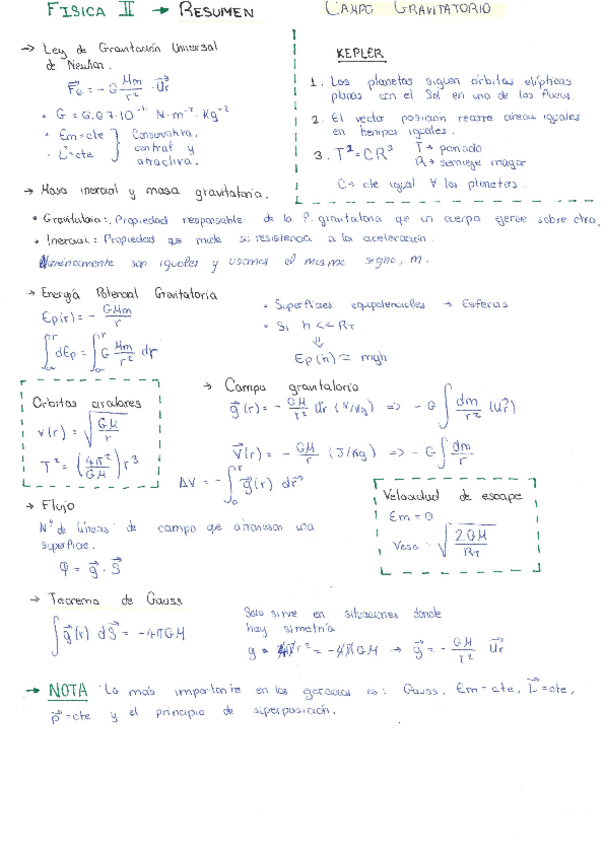 FISICA II → RESUMEN
CAMPO GRAVITATORIO
→ Ley de Gravitación Universal
de Newton.
F⃗G = - G Mm/r² · u⃗r
• G = 6,67·10⁻¹¹ N·m⁻²·Kg⁻²
• Em = cte
• L⃗ = cte
Conservativa,
central y
atractiva.
KEPLER
1. Los planetas siguen órbitas elípticas
planas con el Sol en uno de los focos.
2. El vector posición recorre áreas iguales
en tiempos iguales.
3. T² = CR³
T → periodo
R → semieje mayor
C → cte igual ∀ los planetas.
→ Masa inercial y masa gravitatoria.
• Gravitatoria: Propiedad responsable de la F. gravitatoria que un cuerpo ejerce sobre otro.
• Inercial: Propiedad que mide su resistencia a la aceleración.
Numéricamente son iguales y usamos el mismo signo, m.
→ Energía Potencial Gravitatoria
Ep(r) = - GMm/r
∫ dEp = ∫ G Mm/r² dr
• Superficies equipotenciales → Esferas
• Si h << RT
⇓
Ep(h) ≃ mgh
Orbitas circulares
v(r) = √(GM/r)
T² = (4π²/GM) r³
→ Campo gravitatorio
g⃗(r) = - GM/r² u⃗r (N/Kg) => - G ∫ dm/r² (u⃗r)
V⃗(r) = - GM/r (J/Kg) => - G ∫ dm/r
ΔV = - ∫ g⃗(r) dr⃗
→ Flujo
Nº de líneas de campo que atraviesan una
superficie.
φ = g⃗ · S⃗
Velocidad de escape
Em = 0
Vesc = √(2GM/RT)
→ Teorema de Gauss
∫ g⃗(r) dS⃗ = -4πGM
Solo sirve en situaciones donde
hay simetría
g · 4πr² = -4πGM → g⃗ = - GM/r² u⃗r
→ NOTA Lo más importante en los es: Gauss, Em = cte, L⃗ = cte,
p⃗ = cte y el principio de superposición.